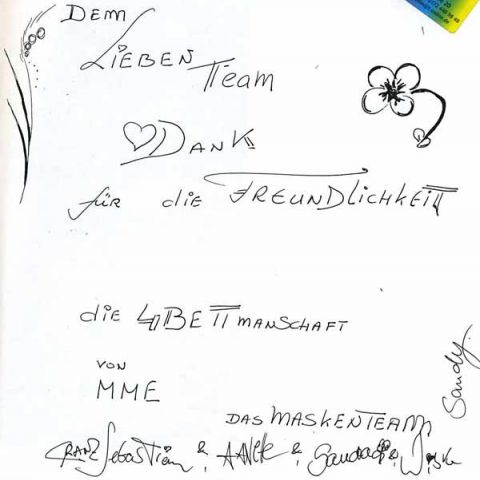 DEM
LIEBEN
Team
DANK
für die FREUNDLICHKEIT
die 4BETTMANSCHAFT
VON
MME
DAS MASKENTEAM
Sandy
FRANZ Sebastian & &